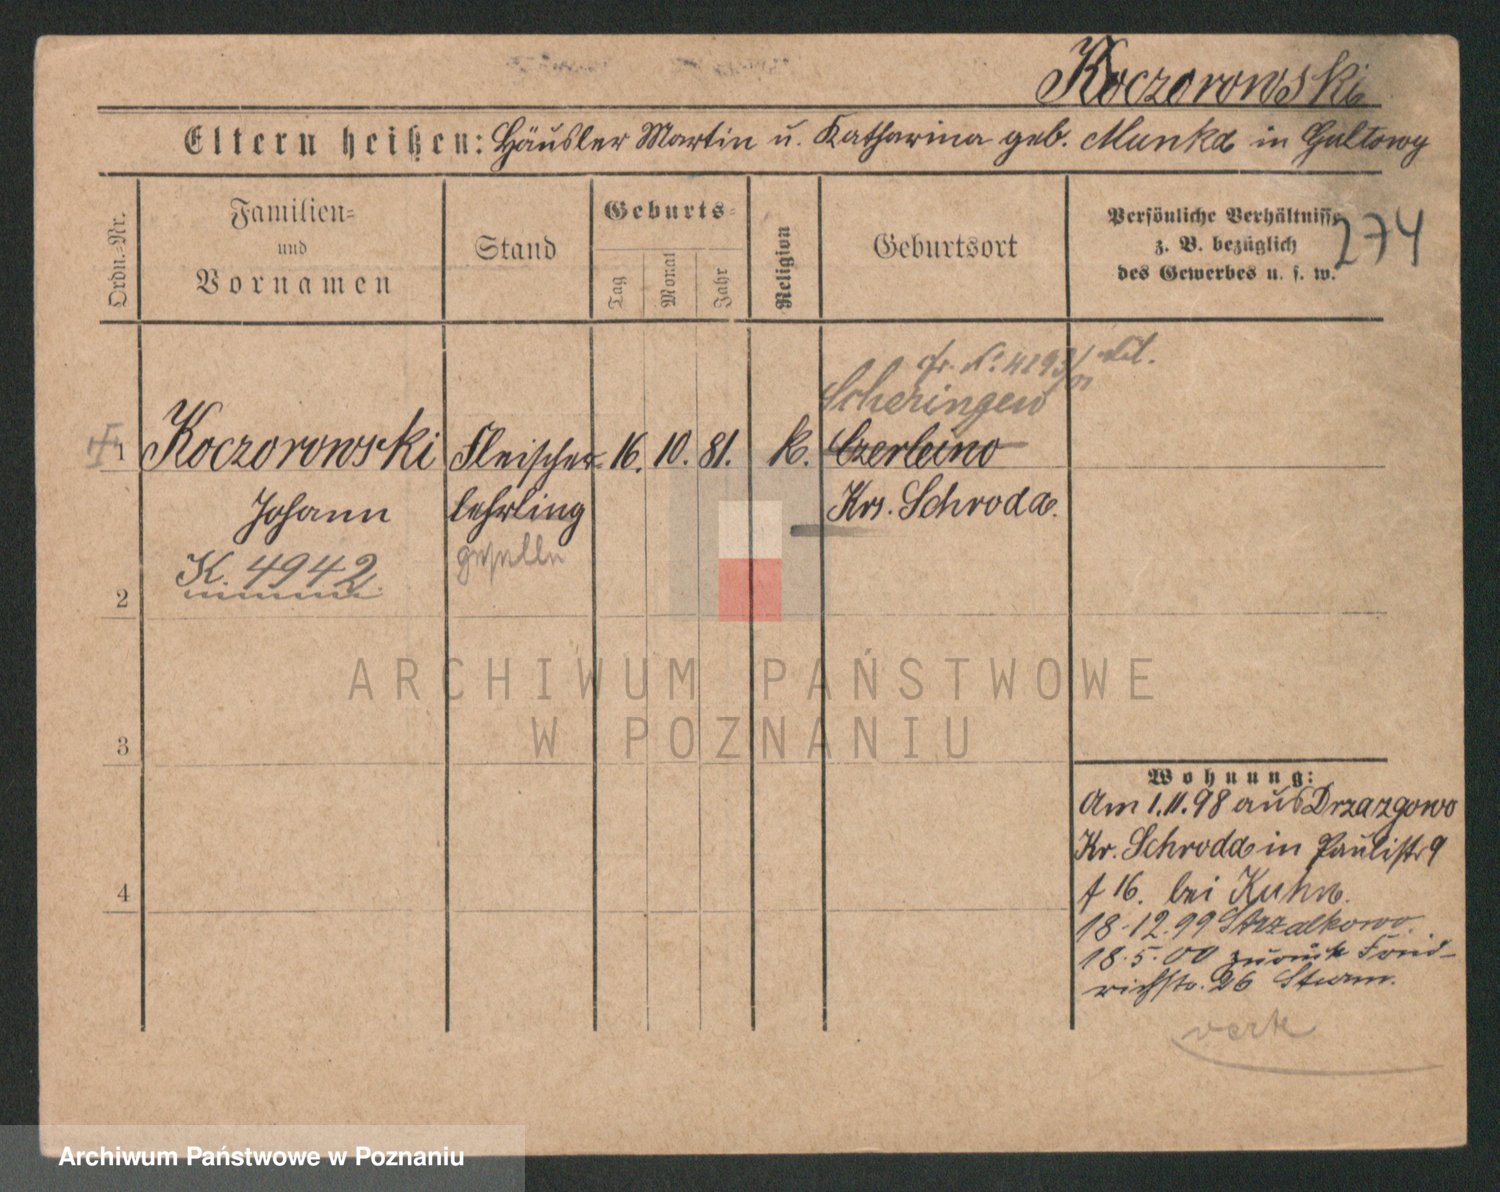 Koczorowski
Eltern heißen: Häusler Martin u. Katharina geb. Munka in Gultowy
Ordn.=Nr.
Familien=
und
Vornamen
Stand
Geburts=
Tag
Monat
Jahr
Religion
Geburtsort
Persönliche Verhältnisse
z. B. bezüglich
des Gewerbes u. s. w.
274
N. 4293
Scheringen
1 Koczorowski Fleischer 16. 10. 81. k. Czerleino
Johann lehrling Krs. Schroda.
K. 4942. geselle
2
3
4
Wohnung:
Am 1.11.98 aus Drzazgowo
Kr. Schroda in Paulistr 9
16. bei Kuhn.
18.12.99 Strzalkowo.
18.5.00 zurück Fried-
richstr. 26 Sturm.
ARCHIWUM PAŃSTWOWE
W POZNANIU
Archiwum Państwowe w Poznaniu